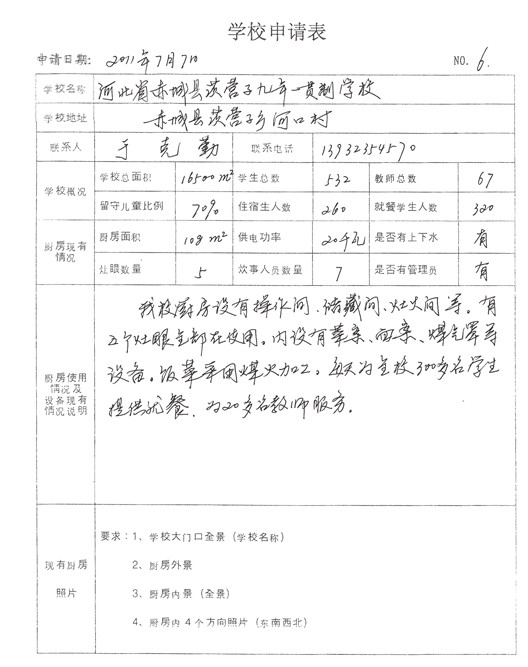 学校申请表
申请日期: 2011年7月7日 NO. 6.
学校名称 河北省赤城县茨营子九年一贯制学校
学校地址 赤城县茨营子乡河口村
联系人 于克勤 联系电话 13932354570
学校概况 学校总面积 16500m² 学生总数 532 教师总数 67
留守儿童比例 70% 住宿生人数 260 就餐学生人数 320
厨房现有情况 厨房面积 108m² 供电功率 20千瓦 是否有上下水 有
灶眼数量 5 炊事人员数量 7 是否有管理员 有
厨房使用情况及设备现有情况说明
我校厨房设有操作间、储藏间、灶火间等。有
五个灶眼全部在使用。内设有菜案、面案、煤气罩等
设备。饭菜采用煤火加工。每天为全校300多名学生
提供就餐、为20多名教师服务.
现有厨房照片
要求:1、学校大门口全景(学校名称)
2、厨房外景
3、厨房内景(全景)
4、厨房内4个方向照片(东南西北)